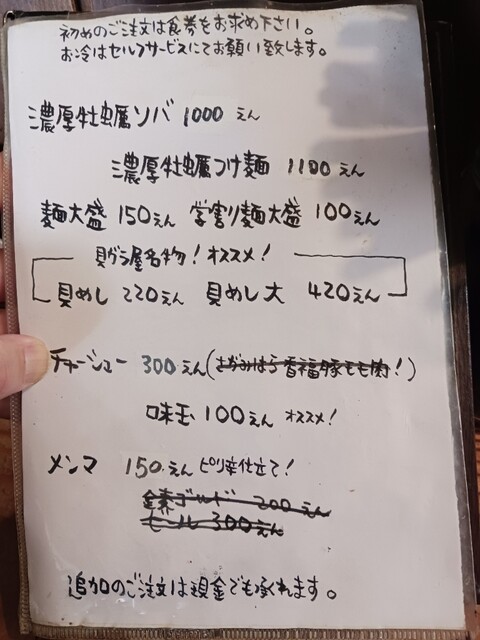 初めのご注文は食券をお求め下さい。
お冷はセルフサービスにてお願い致します。
濃厚牡蠣ソバ 1000えん
濃厚牡蠣つけ麺 1100えん
麺大盛 150えん 学割り麺大盛 100えん
貝ガラ屋名物！オススメ！
貝めし 220えん 貝めし大 420えん
チャーシュー 300えん(さがみはら香福豚もも肉！)
味玉 100えん オススメ！
メンマ 150えん ピリ辛仕立て！
ゴールド 200えん
ビール 300えん
追加のご注文は現金でも承れます。